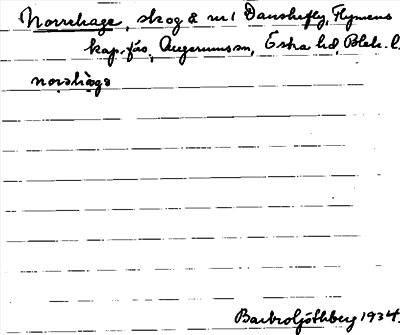 Norrehage, skog å nr 1 Danskefly, Flymens
kap.förs, Augerums sn, Östra hd, Blek. l.
norəhàgə
Barbro Göthberg 1934.